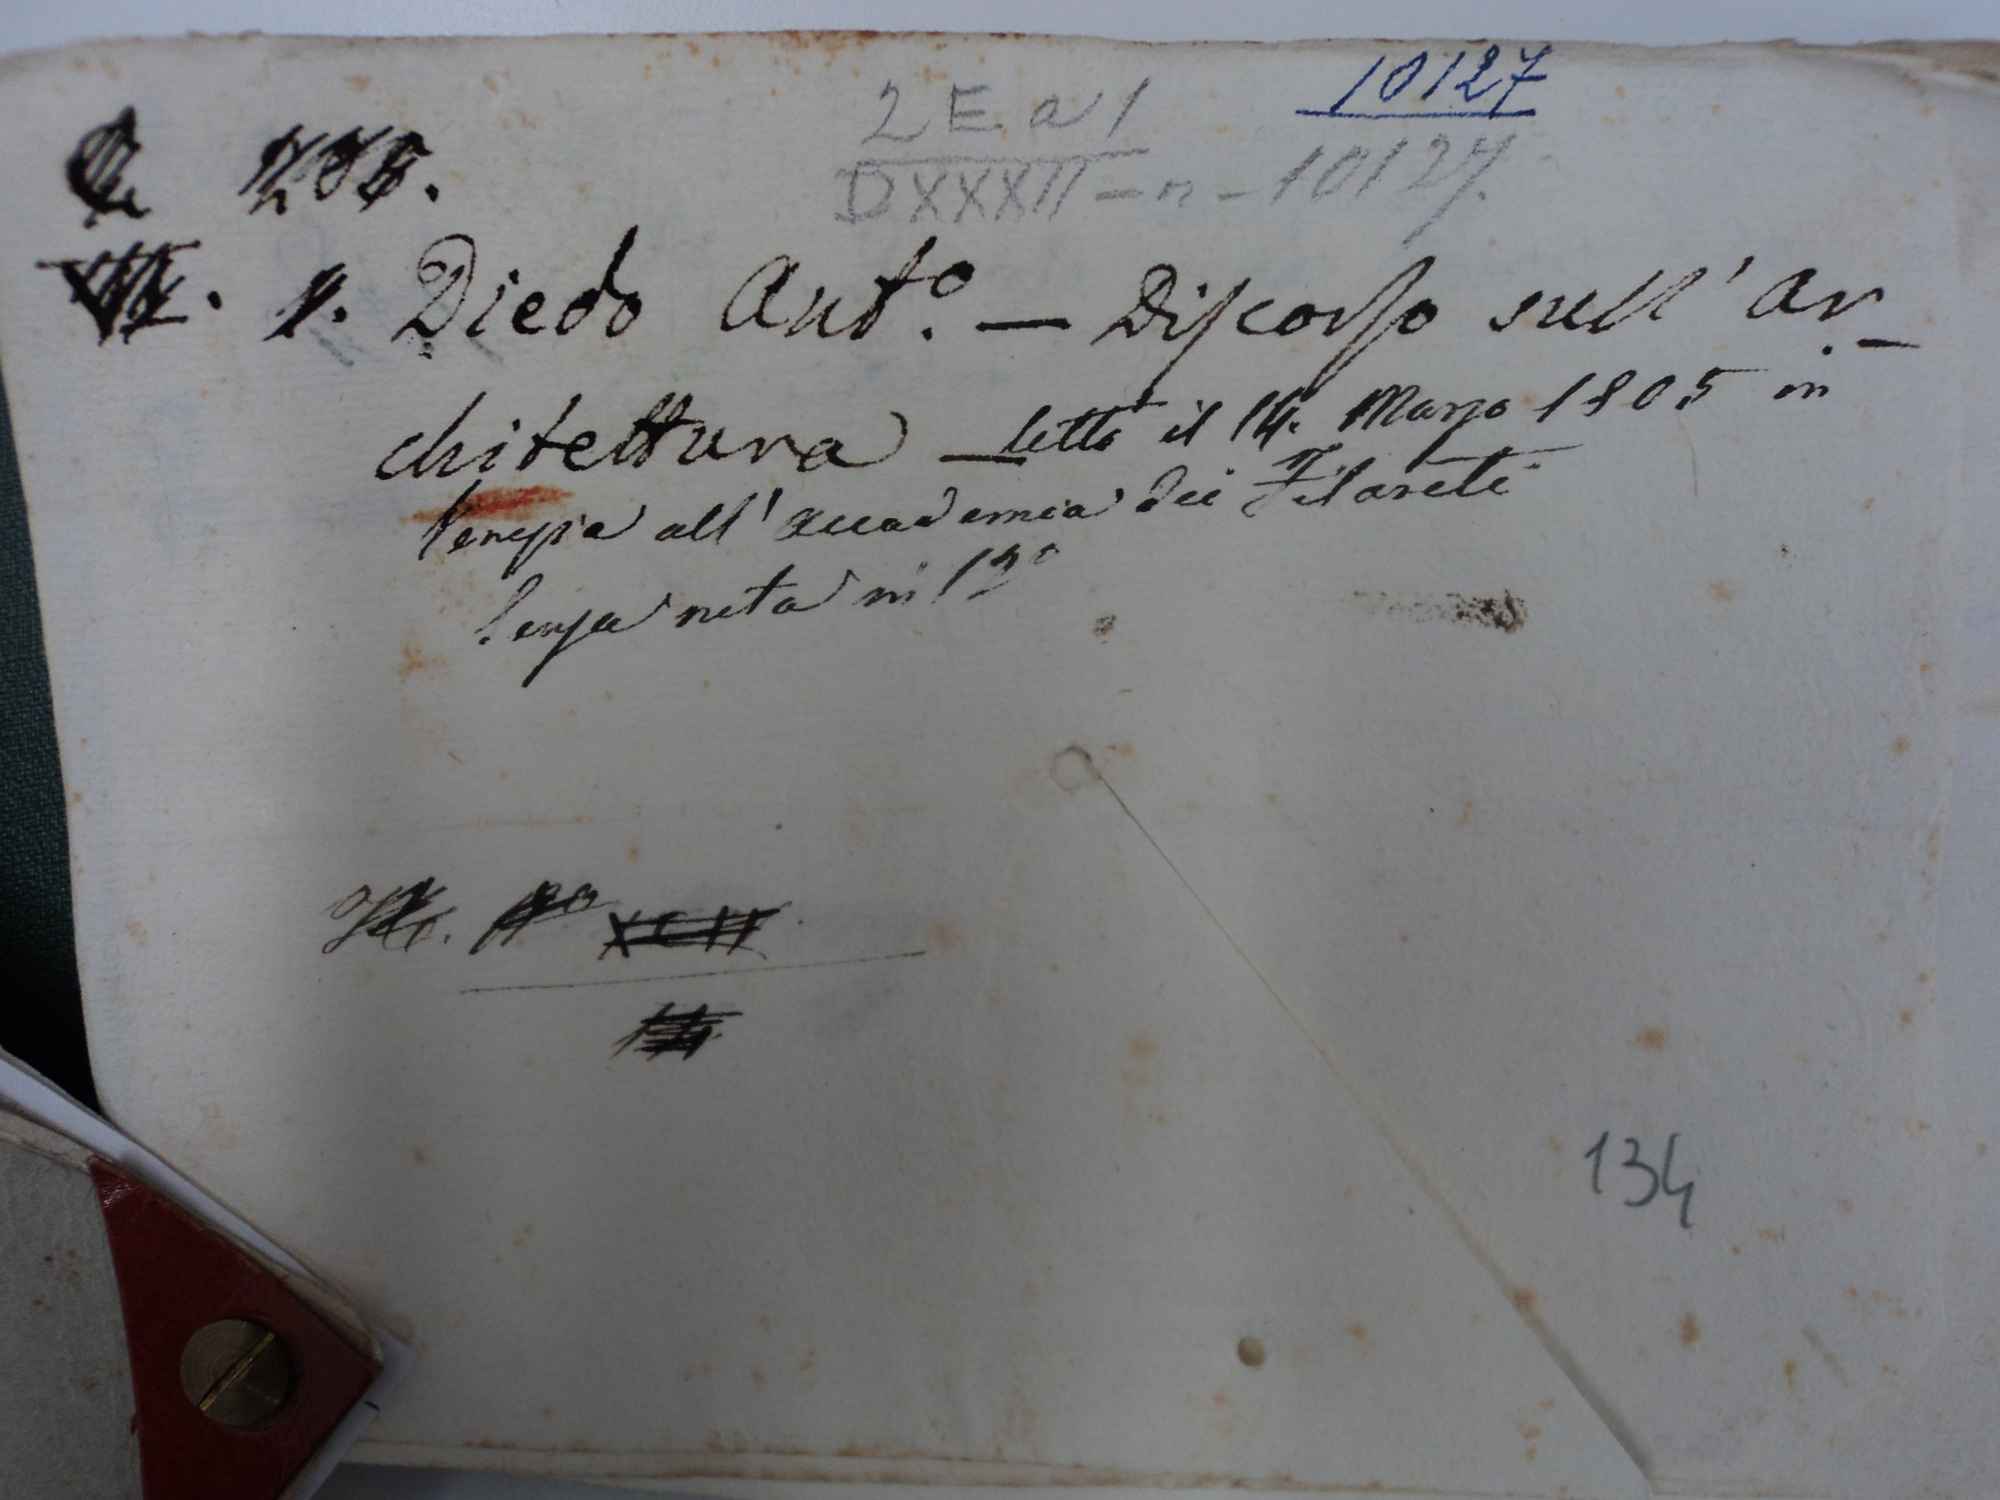 10127
2 E a 1
DXXXII - n - 10127.
Diedo Ant.º — Discorso sull' Ar-
chitettura — letto il 14. Marzo 1805 in
Venezia all' accademia dei Filareti
senza nota in 12º
134